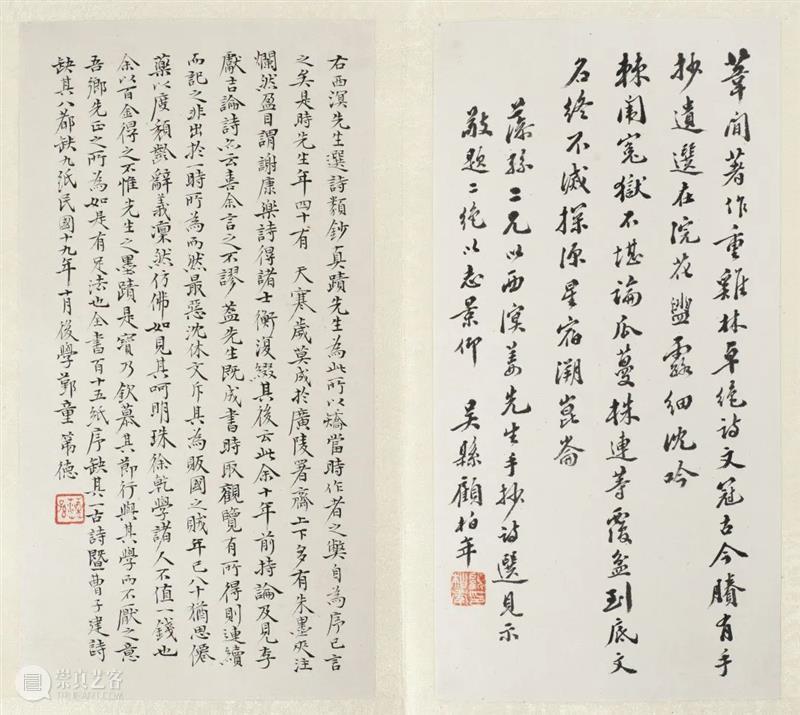 葦間著作重雞林卓絕詩文冠古今賸有手
抄遺選在浣花盥露細沈吟
棘闈冤獄不堪論瓜蔓株連等覆盆到底文
石終不滅探源星宿溯崑崙
藻孫二兄以西溟姜先生手抄詩選見示
敬題二絕以志景仰 吳縣顧柏年
右西溟先生選詩類鈔真蹟先生為此所以矯當時作者之弊自為序已言
之矣是時先生年四十有 天寒歲莫成於廣陵署齋上下多有朱墨夾注
爛然盈目謂謝康樂詩得諸士衡復綴其後云此余十年前持論及見李
獻吉論詩亦云喜余言之不謬蓋先生既成書時取觀覽有所得則連續
而記之非出於一時所為而然最惡沈休文斥其為販國之賊年已八十猶思僊
藥以度頹齡辭義凜然仿佛如見其呵明珠徐乾學諸人不值一錢也
余以百金得之不惟先生之墨蹟是寶乃欽慕其節行與其學而不厭之意
吾鄉先正之所為如是有足法也全書百十五紙序缺其一古詩暨曹子建詩
缺其八都缺九紙民國十九年十月後學鄞童第德
崇真艺客